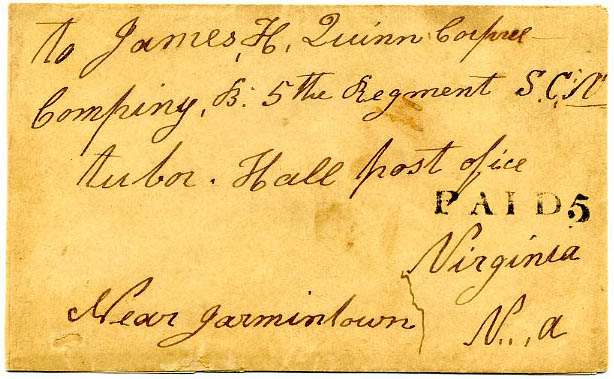 to James, H, Quinn Corpree
Compiny, B. 5 the Regment S.C,N
tubor. Hall post ofice
PAID 5
Virginia
Near Jarmintown
N..,a